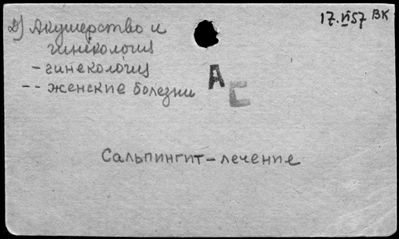 2) Акушерство и
гинекология
- гинекология
-- женские болезни
17.VI57 ВК
АС
Сальпингит - лечение